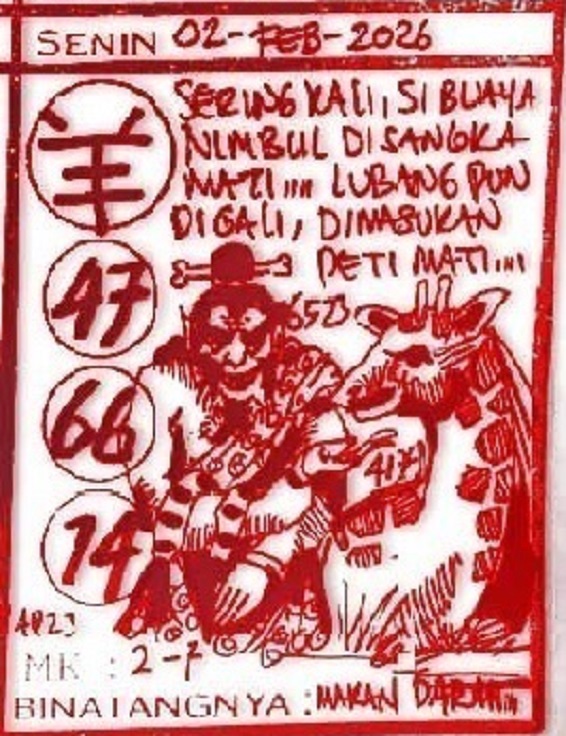 SENIN 02-FEB-2026
羊
SERING KALI, SI BUAYA
NIMBUL DI SANGKA
MATI.... LUBANG PUN
DI GALI, DIMASUKAN
PETI MATI....
47
66
74
417
MK : 2-7
BINATANGNYA : MAKAN DARAH...